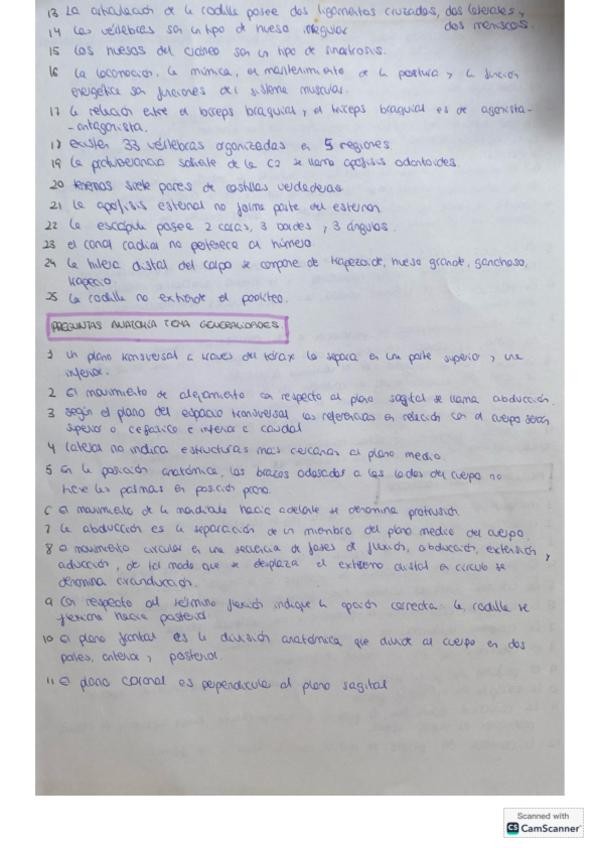 13 La articulación de la rodilla posee dos ligamentos cruzados, dos laterales y
dos meniscos.
14 Las vértebras son un tipo de hueso irregular
15 Los huesos del cráneo son un tipo de sinartrosis.
16 La locomoción, la mímica, el mantenimiento de la postura y la función
energética son funciones del sistema muscular.
17 la relación entre el bíceps braquial y el tríceps braquial es de agonista-
-antagonista.
18 existen 33 vértebras organizadas en 5 regiones
19 la protuberancia saliente de la C2 se llama apófisis odontoides.
20 tenemos siete pares de costillas verdaderas
21 La apófisis esternal no forma parte del esternón
22 La escápula posee 2 caras, 3 bordes y 3 ángulos.
23 el canal radial no pertenece al húmero
24 la hilera distal del carpo se compone de trapezoide, hueso grande, ganchoso,
trapecio.
25 La rodilla no extiende el poplíteo.
PREGUNTAS ANATOMÍA TEMA GENERALIDADES.
1 un plano transversal a través del tórax lo separa en una parte superior y una
inferior.
2 El movimiento de alejamiento con respecto al plano sagital se llama abducción.
3 según el plano del espacio transversal las referencias en relación con el cuerpo serán
superior o cefálico e inferior o caudal
4 lateral no indica estructuras más cercanas al plano medio.
5 En la posición anatómica, los brazos adosados a los lados del cuerpo no
tiene las palmas en posición prona.
6 el movimiento de la mandíbula hacia adelante se denomina protrusión.
7 la abducción es la separación de un miembro del plano medio del cuerpo.
8 el movimiento circular en una secuencia de fases de flexión, abducción, extensión y
aducción, de tal modo que se desplaza el extremo distal en círculo se
denomina circunducción.
9 Con respecto al término flexión indique la opción correcta: la rodilla se
flexiona hacia posterior
10 el plano frontal es la división anatómica que divide al cuerpo en dos
partes, anterior y posterior.
11 el plano coronal es perpendicular al plano sagital
Scanned with
CS CamScanner